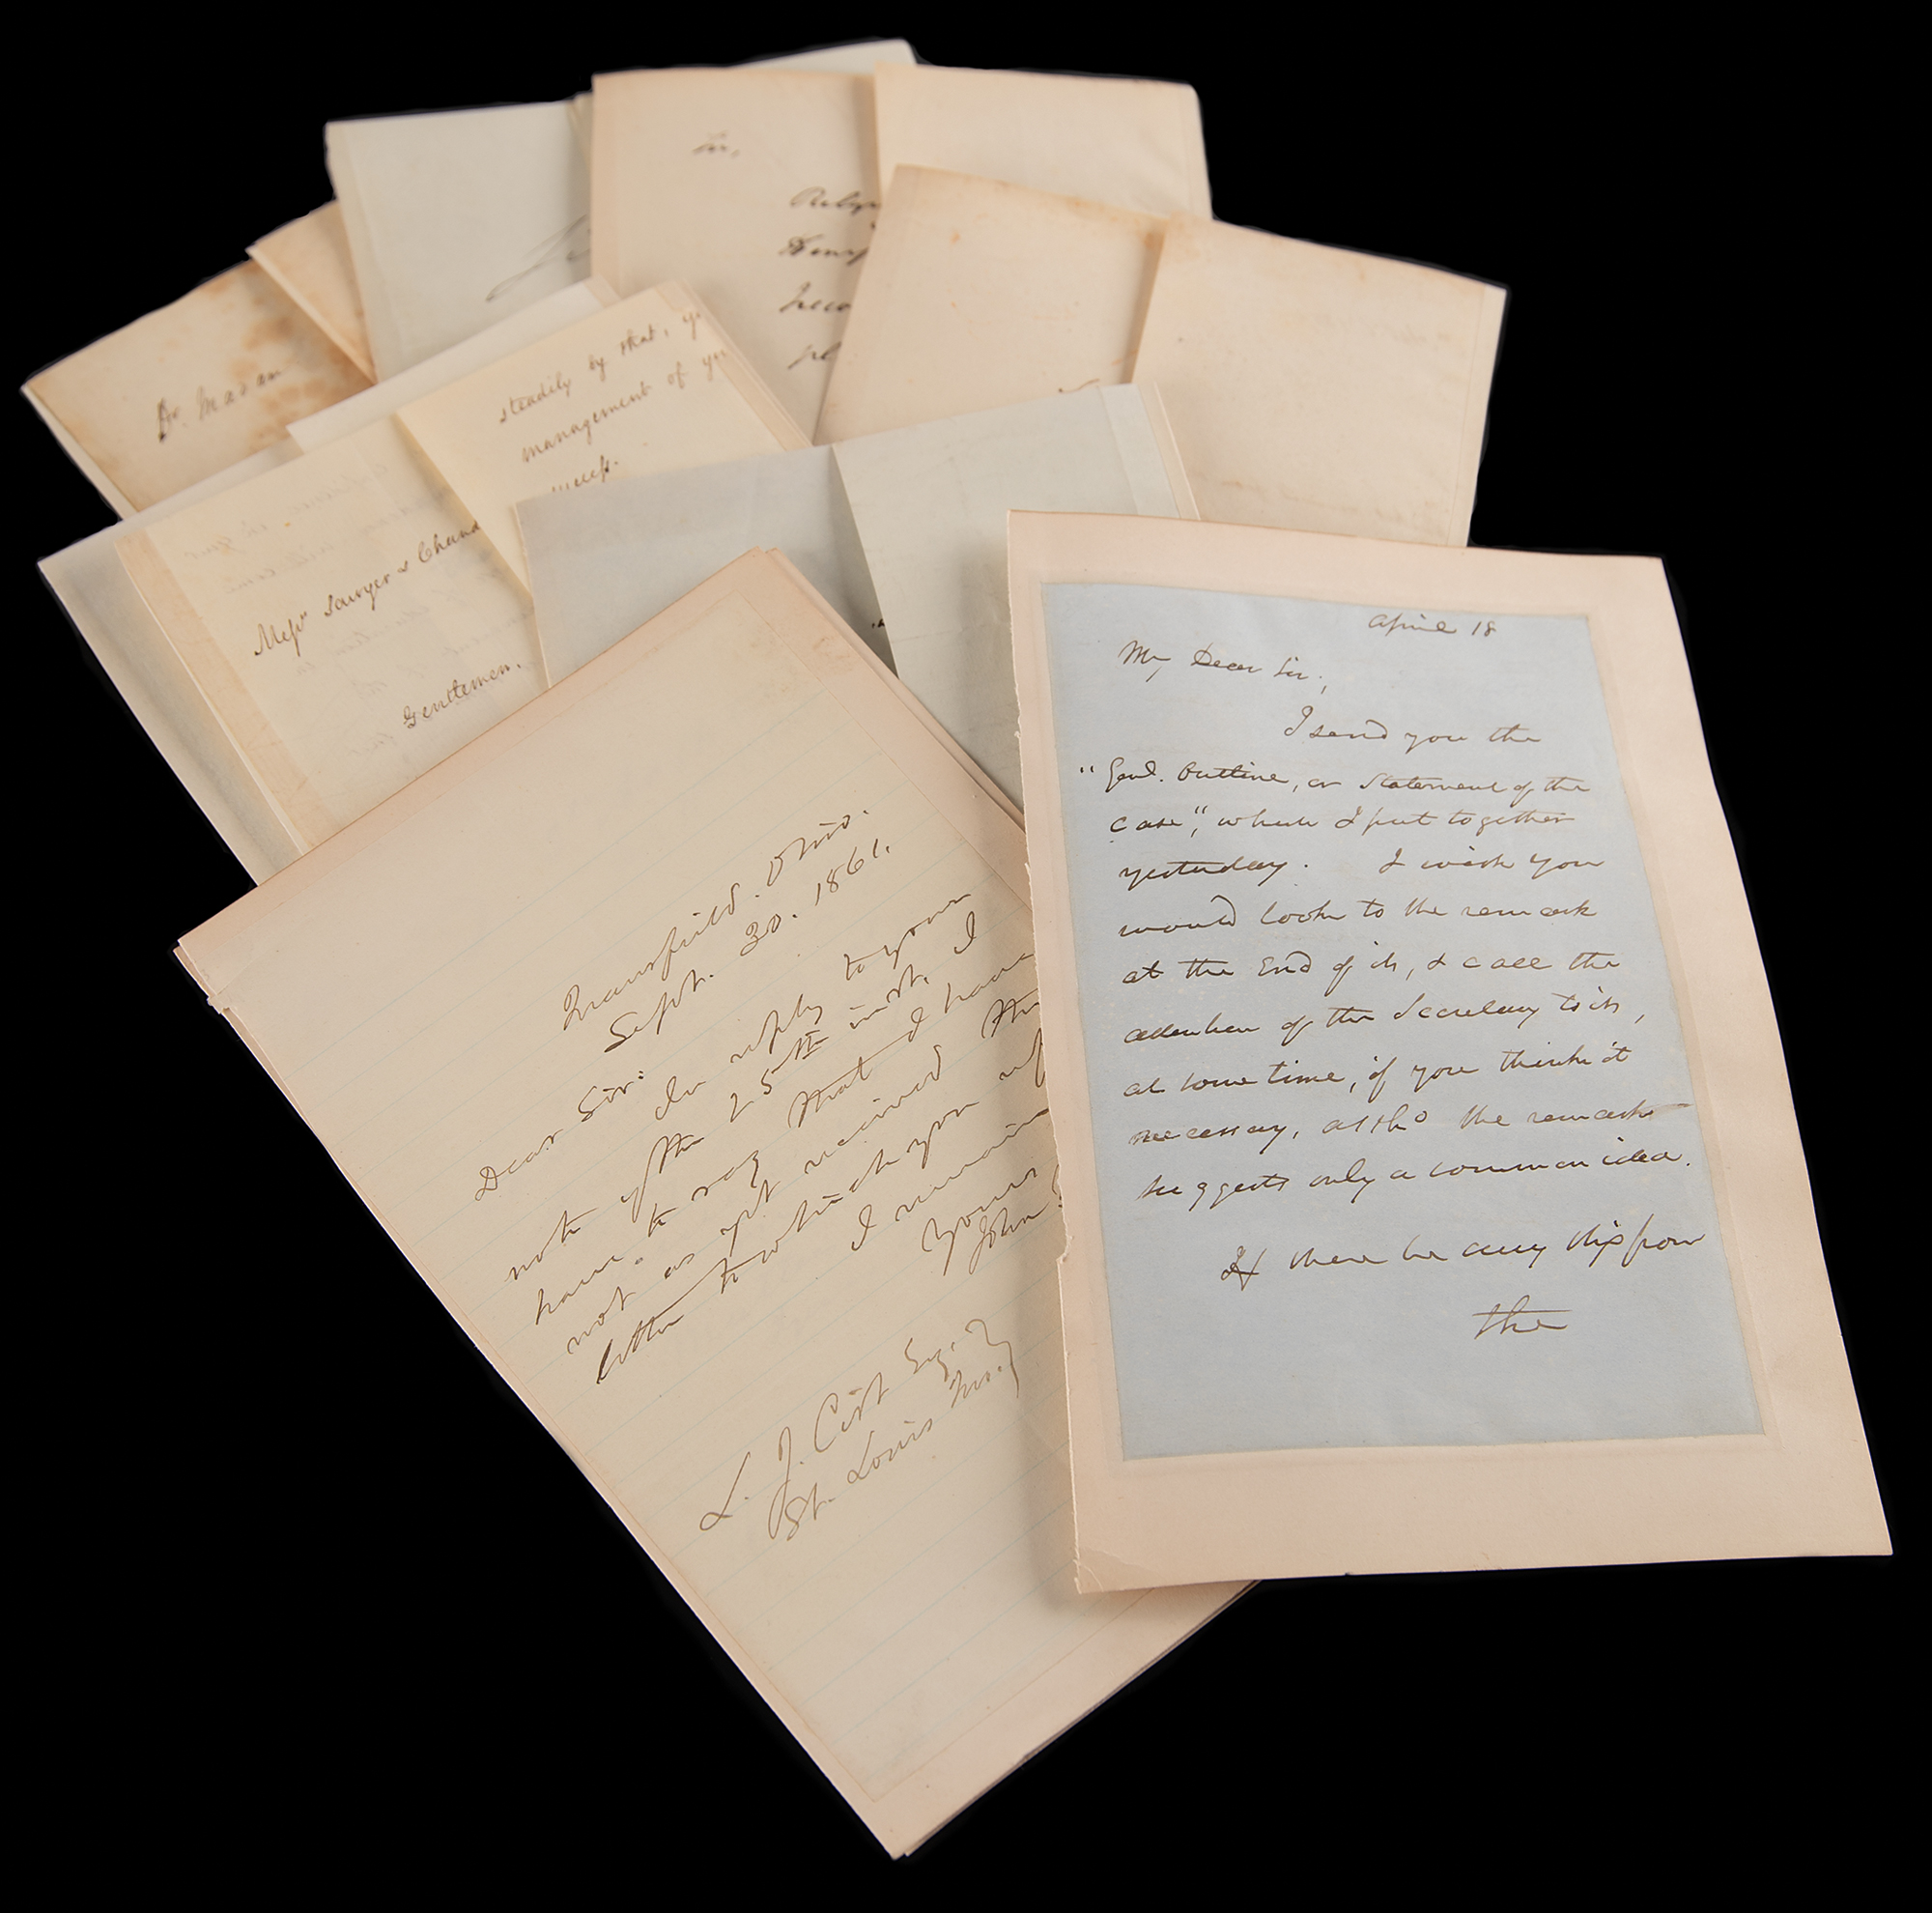 Sir,
Dr. Madam
steadily by that, yo
management of yo
Messrs Sawyer & Chand
Gentlemen.
Mansfield. Ohio.
Sept. 30. 1861.
Dear Sir:
In reply to your
note of the 25th inst. I
have to say that I have
not as yet received the
letter to which you
I remain
Yours
John
L. J. Cist Esq.
St. Louis Mo.
April 18
My Dear Sir;
I send you the
"Genl. Outline, or Statement of the
Case", which I put together
yesterday. I wish you
would look to the remark
at the End of it, & call the
attention of the Secretary to it,
at some time, if you think it
necessary, altho the remark
suggests only a common idea.
If there be any slip from
the